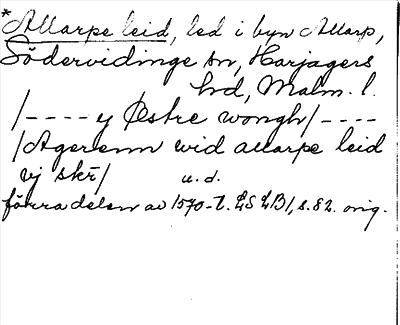 *Allarpe leid, led i byn Allarp,
Södervidinge sn, Harjagers
hd, Malm. l.
/ - - - - ej Østre wongh / - - - -
/ Agerenn wid allarpe leid
vj skr̄ /    u. d.
förra delen av 1570-t. LS LB1, s. 82. orig.